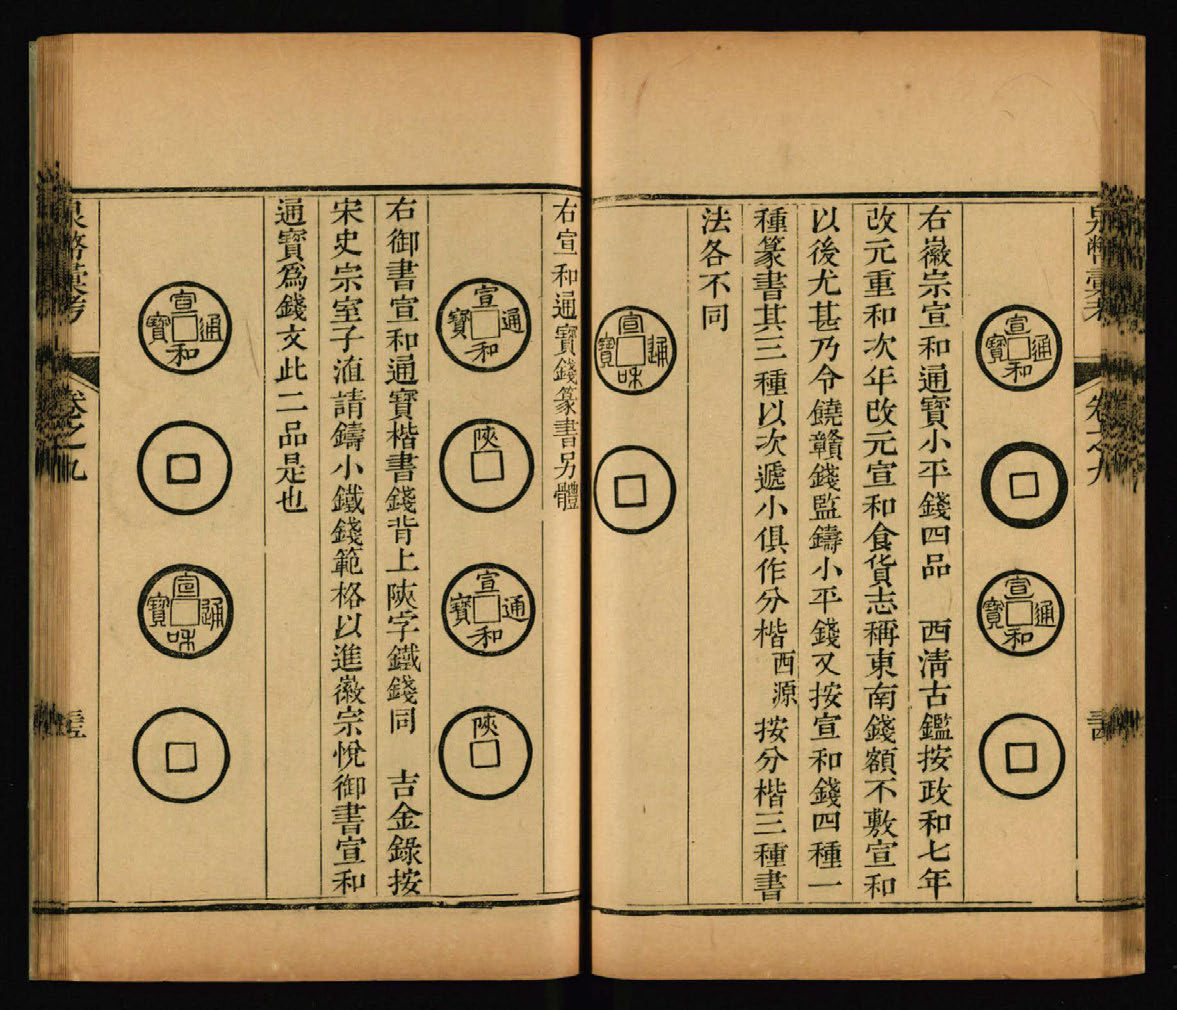 卷之九
宣和通寶
宣和通寶
右徽宗宣和通寶小平錢四品　西淸古鑑按政和七年
改元重和次年改元宣和食貨志稱東南錢額不敷宣和
以後尤甚乃令饒贛錢監鑄小平錢又按宣和錢四種一
種篆書其三種以次遞小俱作分楷西源　按分楷三種書
法各不同
宣和通寶
右宣和通寶錢篆書另體
宣和通寶
陝
宣和通寶
陝
右御書宣和通寶楷書錢背上陝字鐵錢同　吉金錄按
宋史宗室子洫請鑄小鐵錢範格以進徽宗悅御書宣和
通寶爲錢文此二品是也
宣和通寶
宣和通寶
泉幣彙考
卷之九